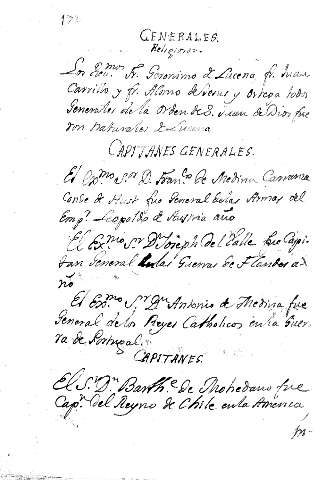 GENERALES.
Religiosos.
Los Rev.mos Fr. Geronimo d Lucena fr. Juan
Carrillo y fr. Alonso de Jesus y Ortega todos
Generales de la Orden de S. Juan de Dios fue
ron naturales de Lucena
CAPITANES GENERALES.
El Ex.mo S.or D. Fran.co de Medina Carranza
Conde de fue General de las Armas del
Emp.r Leopoldo de año
El Ex.mo S.r D.n Joseph del Valle fue Capi-
tan General en las Guerras de Flandes a-
ño
El Ex.mo S.r D.n Antonio de Medina fue
General de los Reyes Catholicos en la Guer
ra de Portugal.
CAPITANES.
El S.r D.n Barth.e de Mohedano fue
Cap.n del Reyno de Chile en la America,